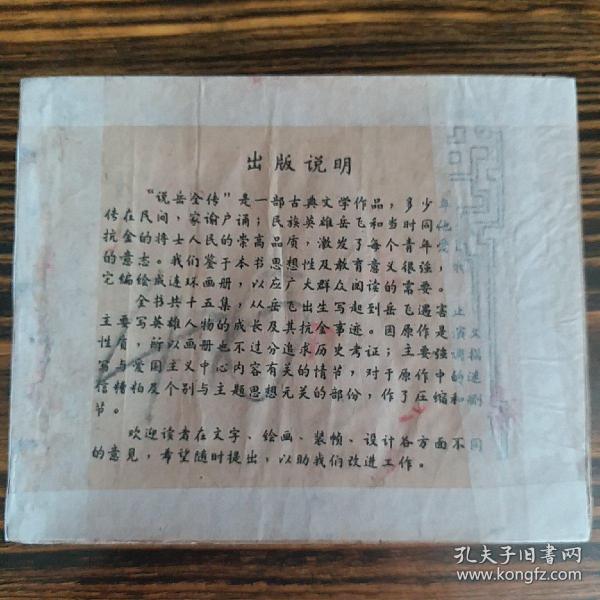 出版说明
“说岳全传”是一部古典文学作品，多少年
传在民间，家谕户诵；民族英雄岳飞和当时同
抗金的将士人民的崇高品质，激发了每个青年
的意志。我们鉴于本书思想性及教育意义很强，
它编绘成连环画册，以应广大群众阅读的需要。
全书共十五集，从岳飞出生写起到岳飞遇害止
主要写英雄人物的成长及其抗金事迹。因原作是演义
性质，所以画册也不过分追求历史考证；主要强调描
写与爱国主义中心内容有关的情节，对于原作中的迷
信糟粕及个别与主题思想无关的部份，作了压缩和删
节。
欢迎读者在文字、绘画、装帧、设计各方面不同
的意见，希望随时提出，以助我们改进工作。
孔夫子旧书网
www.kongfz.com